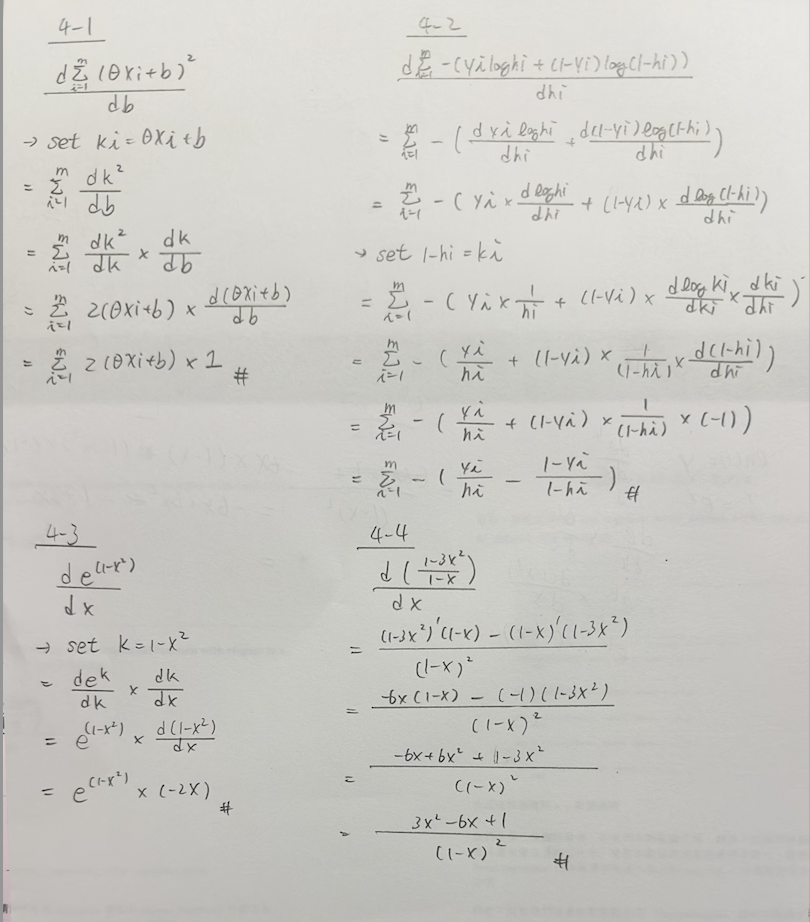 4-1
d Σ_{i=1}^{m} (θxi+b)² / db
→ set ki = θxi+b
= Σ_{i=1}^{m} dk² / db
= Σ_{i=1}^{m} dk²/dk × dk/db
= Σ_{i=1}^{m} 2(θxi+b) × d(θxi+b)/db
= Σ_{i=1}^{m} 2(θxi+b) × 1 #
4-2
d Σ_{i=1}^{m} -(yi log hi + (1-yi) log(1-hi)) / dhi
= Σ_{i=1}^{m} - ( d yi log hi / dhi + d(1-yi) log(1-hi) / dhi )
= Σ_{i=1}^{m} - ( yi × d log hi / dhi + (1-yi) × d log(1-hi) / dhi )
→ set 1-hi = ki
= Σ_{i=1}^{m} - ( yi × 1/hi + (1-yi) × d log ki / dki × dki/dhi )
= Σ_{i=1}^{m} - ( yi/hi + (1-yi) × 1/(1-hi) × d(1-hi)/dhi )
= Σ_{i=1}^{m} - ( yi/hi + (1-yi) × 1/(1-hi) × (-1) )
= Σ_{i=1}^{m} - ( yi/hi - (1-yi)/(1-hi) ) #
4-3
d e^{(1-x²)} / dx
→ set k = 1-x²
= de^k/dk × dk/dx
= e^{(1-x²)} × d(1-x²)/dx
= e^{(1-x²)} × (-2x) #
4-4
d ( (1-3x²)/(1-x) ) / dx
= ( (1-3x²)'(1-x) - (1-x)'(1-3x²) ) / (1-x)²
= ( -6x(1-x) - (-1)(1-3x²) ) / (1-x)²
= ( -6x+6x² + 1-3x² ) / (1-x)²
= ( 3x²-6x+1 ) / (1-x)² #